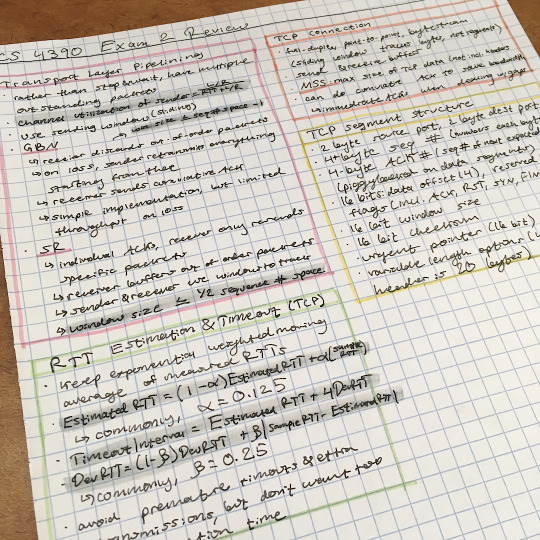 CS 4390 Exam 2 Review
Transport Layer Pipelining
· rather than stop & wait, have multiple
outstanding packets
channel utilization of sender =
· use sending window (sliding)
· GBN
↳ receiver discards out-of-order packets
↳ on loss, sender retransmits everything
starting from there
↳ receiver sends cumulative ACK
↳ simple implementation, but limited
throughput on loss
· SR
↳ individual ACKs, receiver only resends
specific packets
↳ receiver buffers out of order packets
↳ sender & receiver use window to track
↳ window size ≤ 1/2 sequence # space
TCP connection
· full-duplex, point-to-point, bytestream
(sliding window tracks bytes, not segments)
· send & receive buffers
· MSS: max size of TCP data (not incl. headers)
· can do cumulative ACK to save bandwidth
↳ immediate ACKs when closing up gaps
TCP segment structure
· 2 byte source port, 2 byte dest port
· 4-byte seq # (numbers each byte
· 4-byte ACK # (seq # of next expected
(piggybacked on data segments)
· 16 bits: data offset (4), reserved
flags (incl. ACK, RST, SYN, FIN
· 16 bit window size
· 16 bit checksum
· urgent pointer (16 bit)
· variable length options
header is 20 bytes)
RTT Estimation & Timeout (TCP)
· keep exponential weighted moving
average of measured RTTs
· Estimated RTT = (1-α) Estimated RTT + α(Sample RTT)
↳ commonly, α = 0.125
· Timeout Interval = Estimated RTT + 4 Dev RTT
· Dev RTT = (1-β) Dev RTT + β|Sample RTT - Estimated RTT|
↳ commonly, β = 0.25
· avoid premature timeouts & extra
but don't want too
time